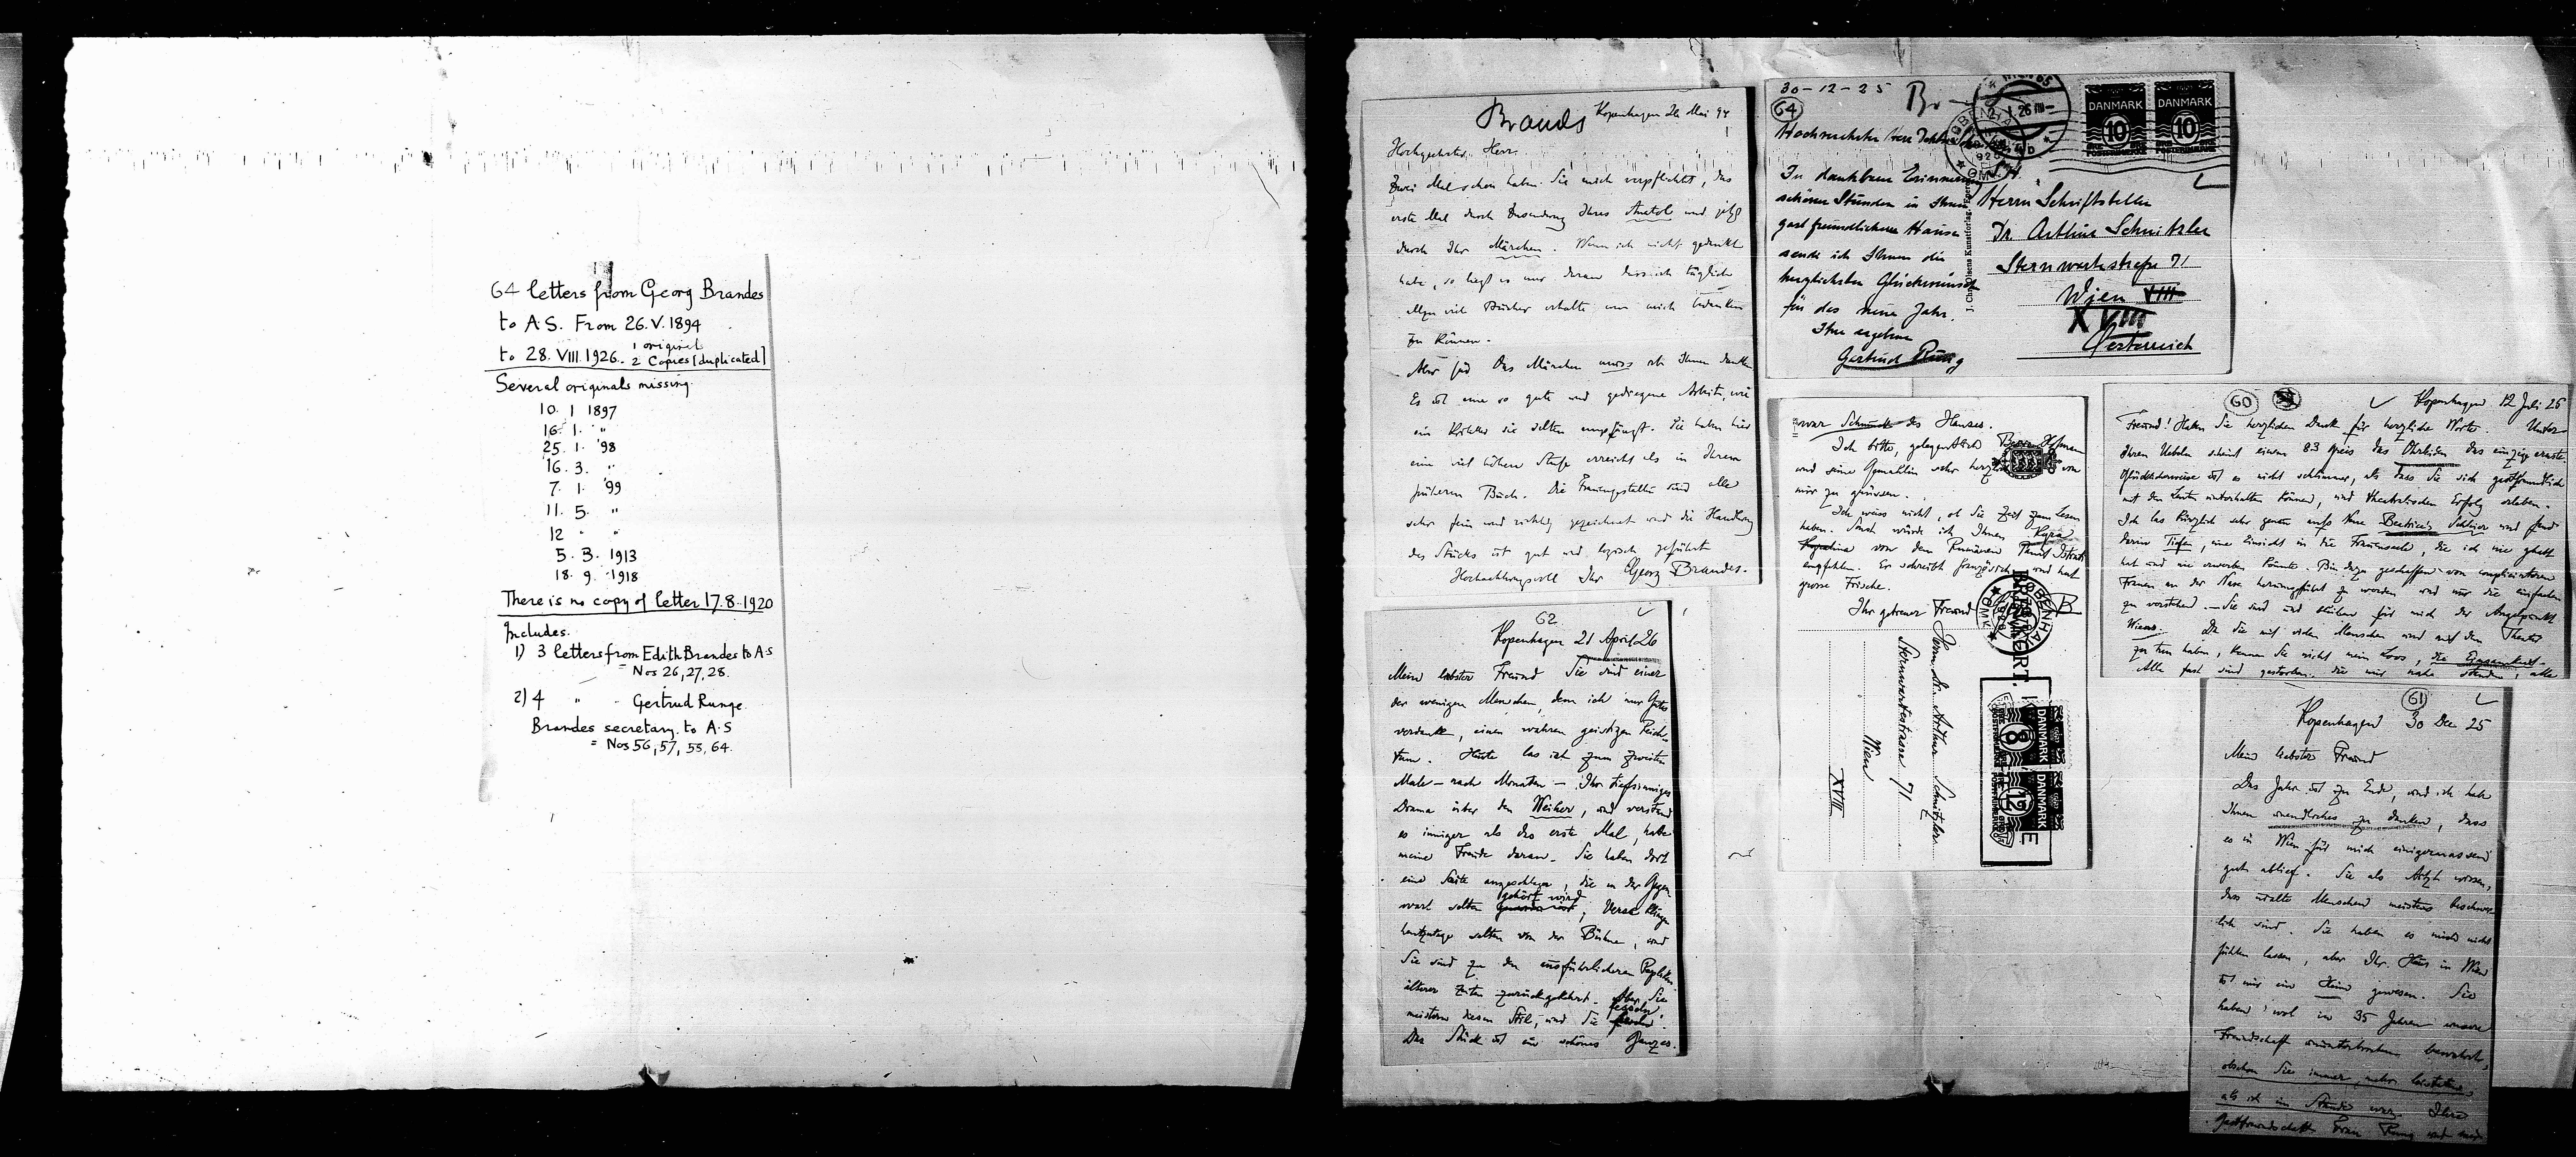 64 letters from Georg Brandes
to A.S. From 26.V.1894
to 28.VIII.1926. 1 original
2 Copies [duplicated]
Several originals missing.
10. 1 1897
16. 1. "
25. 1. '98
16. 3. "
7. 1. '99
11. 5. "
12 " "
5. 3. 1913
18. 9. 1918
There is no copy of letter 17.8.1920
Includes.
1) 3 letters from Edith Brandes to A.S
= Nos 26,27,28.
2) 4 " " Gertrud Runge
Brandes secretary. to A.S
= Nos 56,57,55,64.
Brandes Kopenhagen 26 Mai 94
Hochgeehrter Herr.
Zwei Mal schon haben Sie mich verpflichtet, das
erste Mal durch Zusendung Ihres Anatol und jetzt
durch Ihr Märchen. Wenn ich nicht gedankt
habe, so liegt es nur daran dass ich täglich
allzu viel Bücher erhalte um mich bedanken
zu können.
Aber für Das Märchen muss ich Ihnen danken
Es ist eine so gute und gediegene Arbeit, wie
ein Kritiker sie selten empfängt. Sie haben hier
eine viel höhere Stufe erreicht als in Ihrem
früheren Buch. Die Frauengestalten sind alle
sehr fein und richtig gezeichnet und die Handlung
des Stücks ist gut und logisch geführt
Hochachtungsvoll Ihr Georg Brandes.
62
Kopenhagen 21 April 26
Mein liebster Freund Sie sind einer
der wenigen Menschen, dem ich nur Gutes
verdanke, einen wahren geistigen Reich-
tum. Heute las ich zum zweiten
Male – nach Monaten – Ihr tiefsinniges
Drama über den Weiher, und verstand
es inniger als das erste Mal, habe
meine Freude daran. Sie haben dort
eine Saite angeschlagen, die in der Gegen-
wart selten gehört wird; Verse klingen
heutzutage selten von der Bühne, und
Sie sind zu den ausführlicheren Repliken
älterer Zeiten zurückgekehrt. Aber Sie
meistern diesen Stil, und Sie fesseln.
Das Stück ist ein schönes Ganzes.
30-12-25
64
Hochverehrter Herr Doktor
In dankbarer Erinnerung
schöner Stunden in Ihrem
gastfreundlichen Hause
sende ich Ihnen die
herzlichsten Glückwünsche
für das neue Jahr.
Ihre ergebene
Gertrud Rung
DANMARK
10
DANMARK
10
Herrn Schriftsteller
Dr. Arthur Schnitzler
Sternwartestrasse 71
Wien VIII
XVIII
Oesterreich
war Schmuck des Hauses.
Ich bitte, gelegentlich Beer-Hofmann
und seine Gemahlin sehr herzlich von
mir zu grüssen.
Ich weiss nicht, ob Sie Zeit zum Lesen
haben. Sonst würde ich Ihnen Kyra
Kyralina von dem Rumänen Panait Istrati
empfehlen. Er schreibt französisch und hat
grosse Frische.
Ihr getreuer Freund
Herrn Dr. Arthur Schnitzler
Sternwartestrasse 71
Wien
XVIII
BREVKORT
DANMARK
8
DANMARK
12
60
Kopenhagen 12 Juli 25
Freund! Haben Sie herzlichen Dank für herzliche Worte. Unter
Ihren Uebeln scheint einem 83 Greis das Ohrleiden das einzige ernste.
Glücklicherweise ist es nicht schlimmer, als dass Sie sich gastfreundlich
mit den Leuten unterhalten können, und theatralischen Erfolg erleben.
Ich las kürzlich sehr genau aufs Neue Beatrices Schleier und fand
darin Tiefen, eine Einsicht in die Frauenseele, die ich nie gehabt
hat und nie erwerben könnte. Bin dazu geschaffen von complicirteren
Frauen an der Nase herumgeführt zu werden und nur die einfachen
zu verstehen. – Sie sind und bleiben für mich der Angelpunkt
Wiens. Da Sie mit vielen Menschen und mit dem Theater
zu tun haben, kennen Sie nicht mein Loos, die Einsamkeit.
Alle fast sind gestorben, die mir nahe standen, alle
61
Kopenhagen 30 Dec 25
Mein liebster Freund
Das Jahr ist zu Ende, und ich habe
Ihnen unendliches zu danken, dass
es in Wien für mich einigermassen
gut ablief. Sie als Arzt wissen,
dass uralte Menschen meistens beschwer-
lich sind. Sie haben es mich nicht
fühlen lassen, aber Ihr Haus in Wien
ist mir ein Heim gewesen. Sie
haben wol in 35 Jahren unsere
Freundschaft ununterbrochen bewahrt,
obschon Sie immer mehr leisteten,
als ich im Stande war. Ihre
Gastfreundschaft Frau Rung und mir